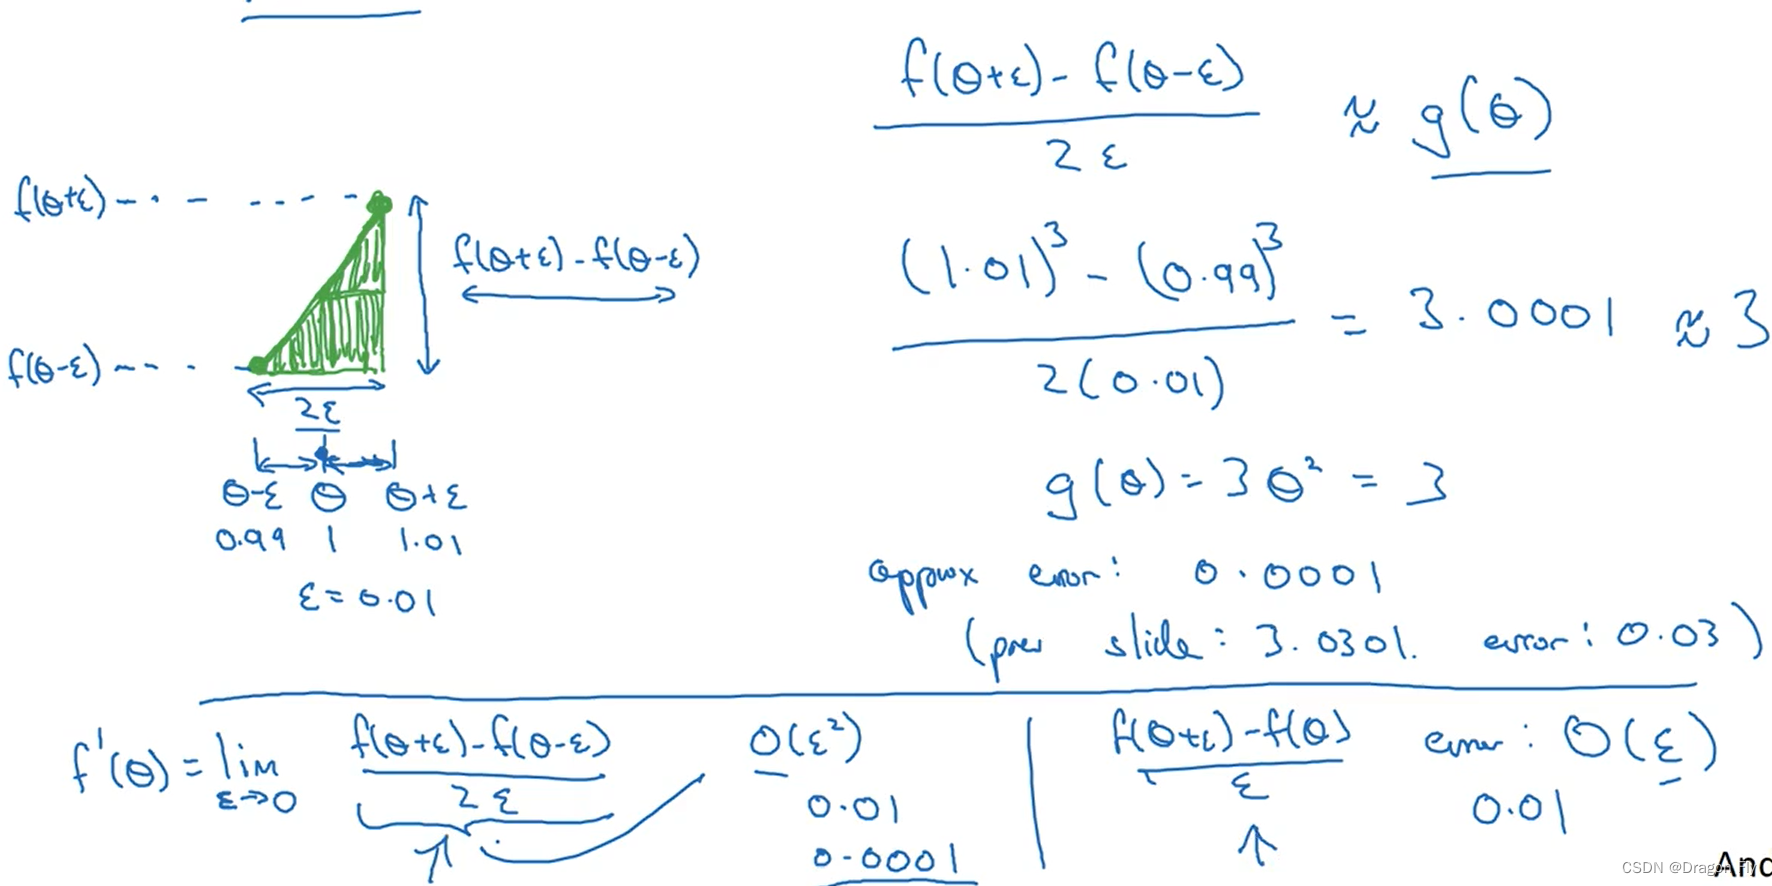 f(θ+ε) - f(θ-ε)
2ε
≈ g(θ)
f(θ+ε)
f(θ+ε) - f(θ-ε)
f(θ-ε)
2ε
θ-ε θ θ+ε
0.99 1 1.01
ε = 0.01
(1.01)³ - (0.99)³
2(0.01)
= 3.0001 ≈ 3
g(θ) = 3θ² = 3
approx error: 0.0001
(prev slide: 3.0301. error: 0.03)
f'(θ) = lim
ε→0
f(θ+ε) - f(θ-ε)
2ε
O(ε²)
0.01
0.0001
f(θ+ε) - f(θ)
ε
error: O(ε)
0.01
CSDN @Dragon_Fly
And